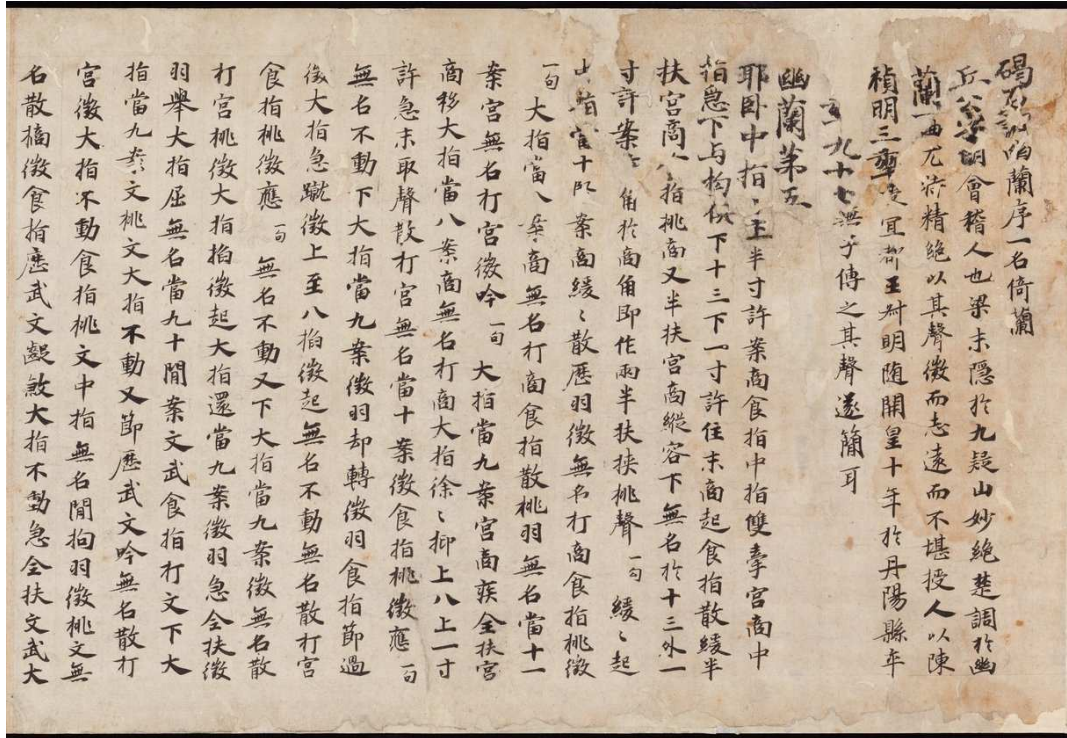 碣石調幽蘭序一名倚蘭
丘公字明會稽人也梁末隱於九疑山妙絕楚調於幽
蘭一曲尤特精絕以其聲微而志遠而不堪授人以陳
禎明三年授宜都王叔明隨開皇十年於丹陽縣卒
九十七無子傳之其聲遂簡耳
幽蘭第五
耶臥中指〻半寸許案商食指中指雙牽宮商中
指急下与拘俱下十三下一寸許住末商起食指散緩半
扶宮商食指挑商又半扶宮商縱容下無名於十三外一
寸許案商角於商角即作兩半扶挾挑聲一句緩〻起
無名不動 案商緩〻散歷羽徵無名打商食指挑徵
一句大指當八案商無名打商食指散挑羽無名當十一
案宮無名打宮徵吟一句大指當九案宮商疾全扶宮
商移大指當八案商無名打商大指徐〻抑上八上一寸
許急末取聲散打宮無名當十案徵食指挑徵應一句
無名不動下大指當九案徵羽却轉徵羽食指節過
徵大指急蹴徵上至八掐徵起無名不動無名散打宮
食指挑徵應一句無名不動又下大指當九案徵無名散
打宮挑徵大指掐徵起大指還當九案徵羽急全扶徵
羽舉大指屈無名當九十間案文武食指打文下大
指當九案文挑文大指不動又節歷武文吟無名散打
宮徵大指不動食指挑文中指無名間拘羽徵挑文無
名散擿徵食指歷武文齪煞大指不動急全扶文武大